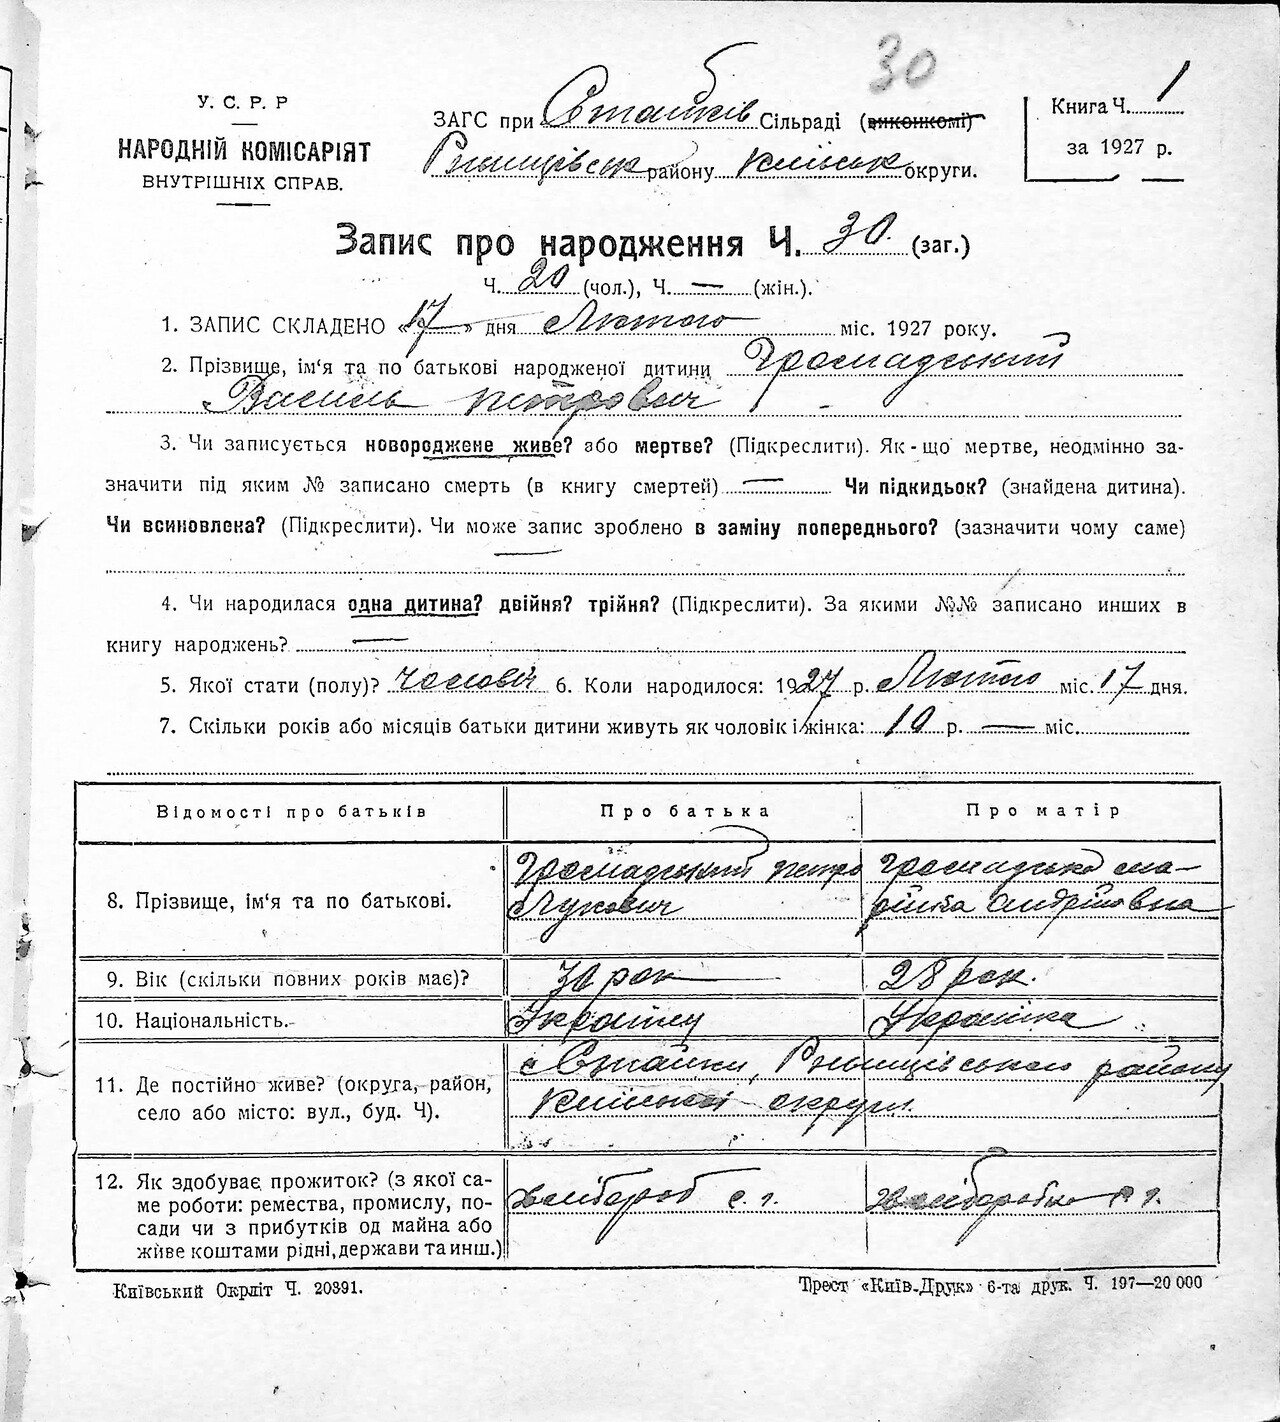 30
У. С. Р. Р
НАРОДНІЙ КОМІСАРІЯТ
ВНУТРІШНІХ СПРАВ.
ЗАГС при Стайків Сільраді (виконкомі)
Ржищівськ району Київськ округи.
Книга Ч. 1
за 1927 р.
Запис про народження Ч. 30 (заг.)
Ч. 20 (чол.), Ч. — (жін.).
1. ЗАПИС СКЛАДЕНО «17» дня Лютого міс. 1927 року.
2. Прізвище, ім'я та по батькові народженої дитини Громадський
Василь Петрович
3. Чи записується новороджене живе? або мертве? (Підкреслити). Як-що мертве, неодмінно за-
значити під яким № записано смерть (в книгу смертей) — Чи підкидьок? (знайдена дитина).
Чи всиновлена? (Підкреслити). Чи може запис зроблено в заміну попереднього? (зазначити чому саме)
—
4. Чи народилася одна дитина? двійня? трійня? (Підкреслити). За якими №№ записано инших в
книгу народжень? —
5. Якої стати (полу)? чоловіч 6. Коли народилося: 1927 р. Лютого міс. 17 дня.
7. Скільки років або місяців батьки дитини живуть як чоловік і жінка: 10 р. — міс.
Відомості про батьків Про батька Про матір
8. Прізвище, ім'я та по батькові. Громадський Петро Лукович Громадська Ма-
Андріївна
9. Вік (скільки повних років має)? 30 рок 28 рок.
10. Національність. Українец Українка
11. Де постійно живе? (округа, район,
село або місто: вул., буд. Ч).
с Стайки, Ржищівського району
Київської округи.
12. Як здобуває прожиток? (з якої са-
ме роботи: ремества, промислу, по-
сади чи з прибутків од майна або
живе коштами рідні, держави та инш.)
хлібороб с. г. хліборобка с. г.
Київський Окрліт Ч. 20391.
Трест «Київ-Друк» 6-та друк. Ч. 197—20 000